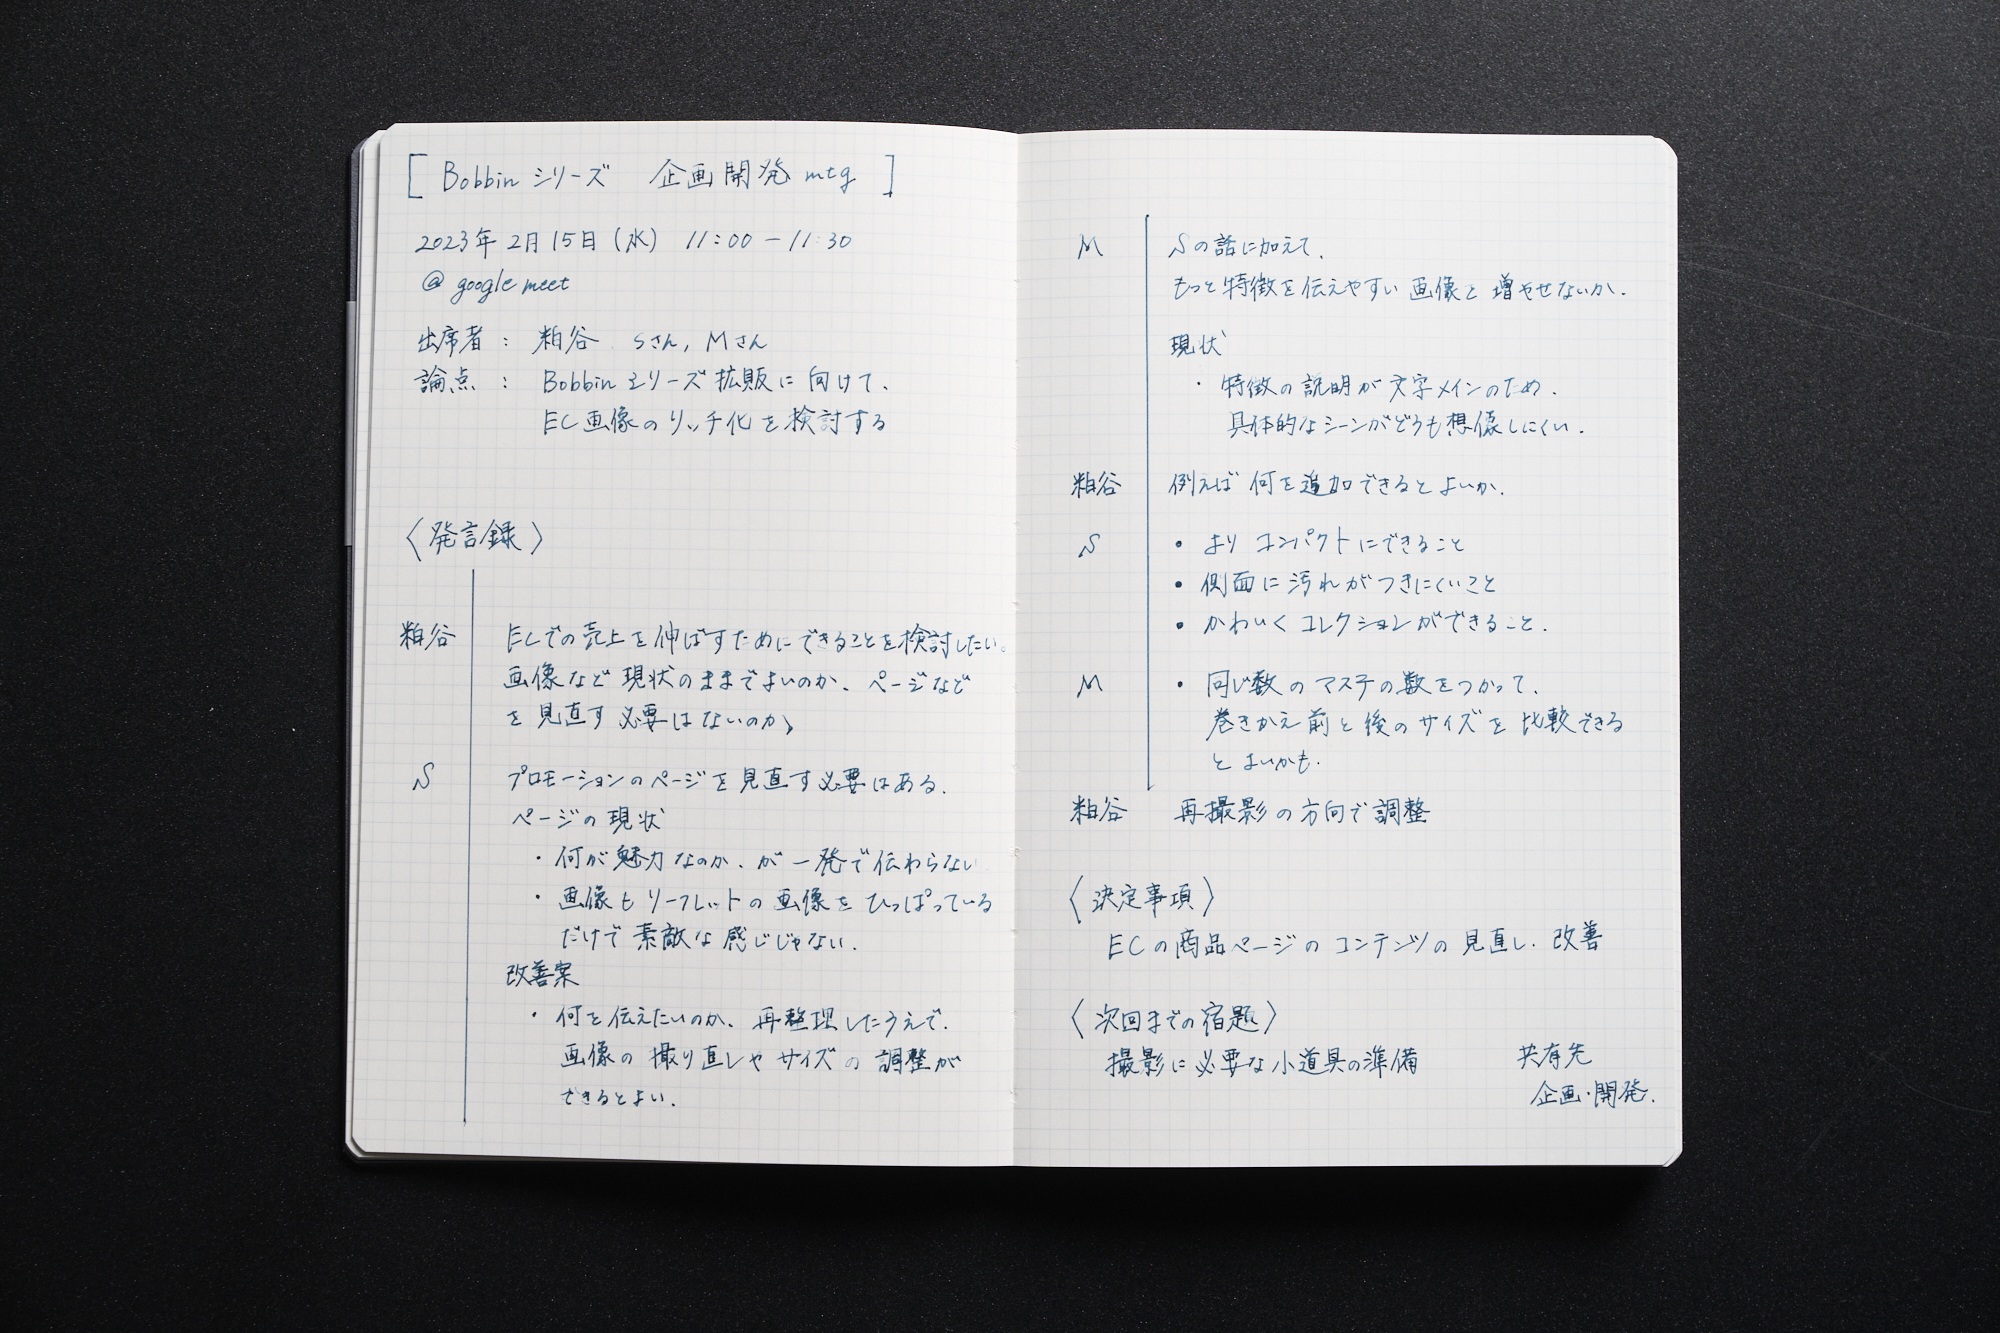 [ Bobbin シリーズ 企画開発 mtg ]
2023年 2月 15日 (水) 11:00 - 11:30
@ google meet
出席者 : 粕谷 Sさん, Mさん
論点 : Bobbin シリーズ 拡販に向けて、
EC画像のリッチ化を検討する
〈発言録〉
粕谷 ECでの売上を伸ばすためにできることを検討したい。
画像など 現状のままでよいのか、ページなど
を見直す必要はないのか、
S プロモーションのページを見直す必要はある.
ページの現状
・何が魅力なのか、が一発で伝わらない
・画像もリーフレットの画像をひっぱっている
だけで素敵な感じじゃない.
改善案
・何を伝えたいのか、再整理したうえで、
画像の撮り直しやサイズの調整が
できるとよい.
M Sの話に加えて、
もっと特徴を伝えやすい画像を増やせないか.
現状
・特徴の説明が文字メインのため、
具体的なシーンがどうも想像しにくい.
粕谷 例えば何を追加できるとよいか.
S ・よりコンパクトにできること
・側面に汚れがつきにくいこと
・かわいくコレクションができること.
M ・同じ数のマステの数をつかって、
巻きかえ前と後のサイズを比較できる
とよいかも.
粕谷 再撮影の方向で調整
〈決定事項〉
ECの商品ページのコンテンツの見直し・改善
〈次回までの宿題〉
撮影に必要な小道具の準備
共有先
企画・開発.